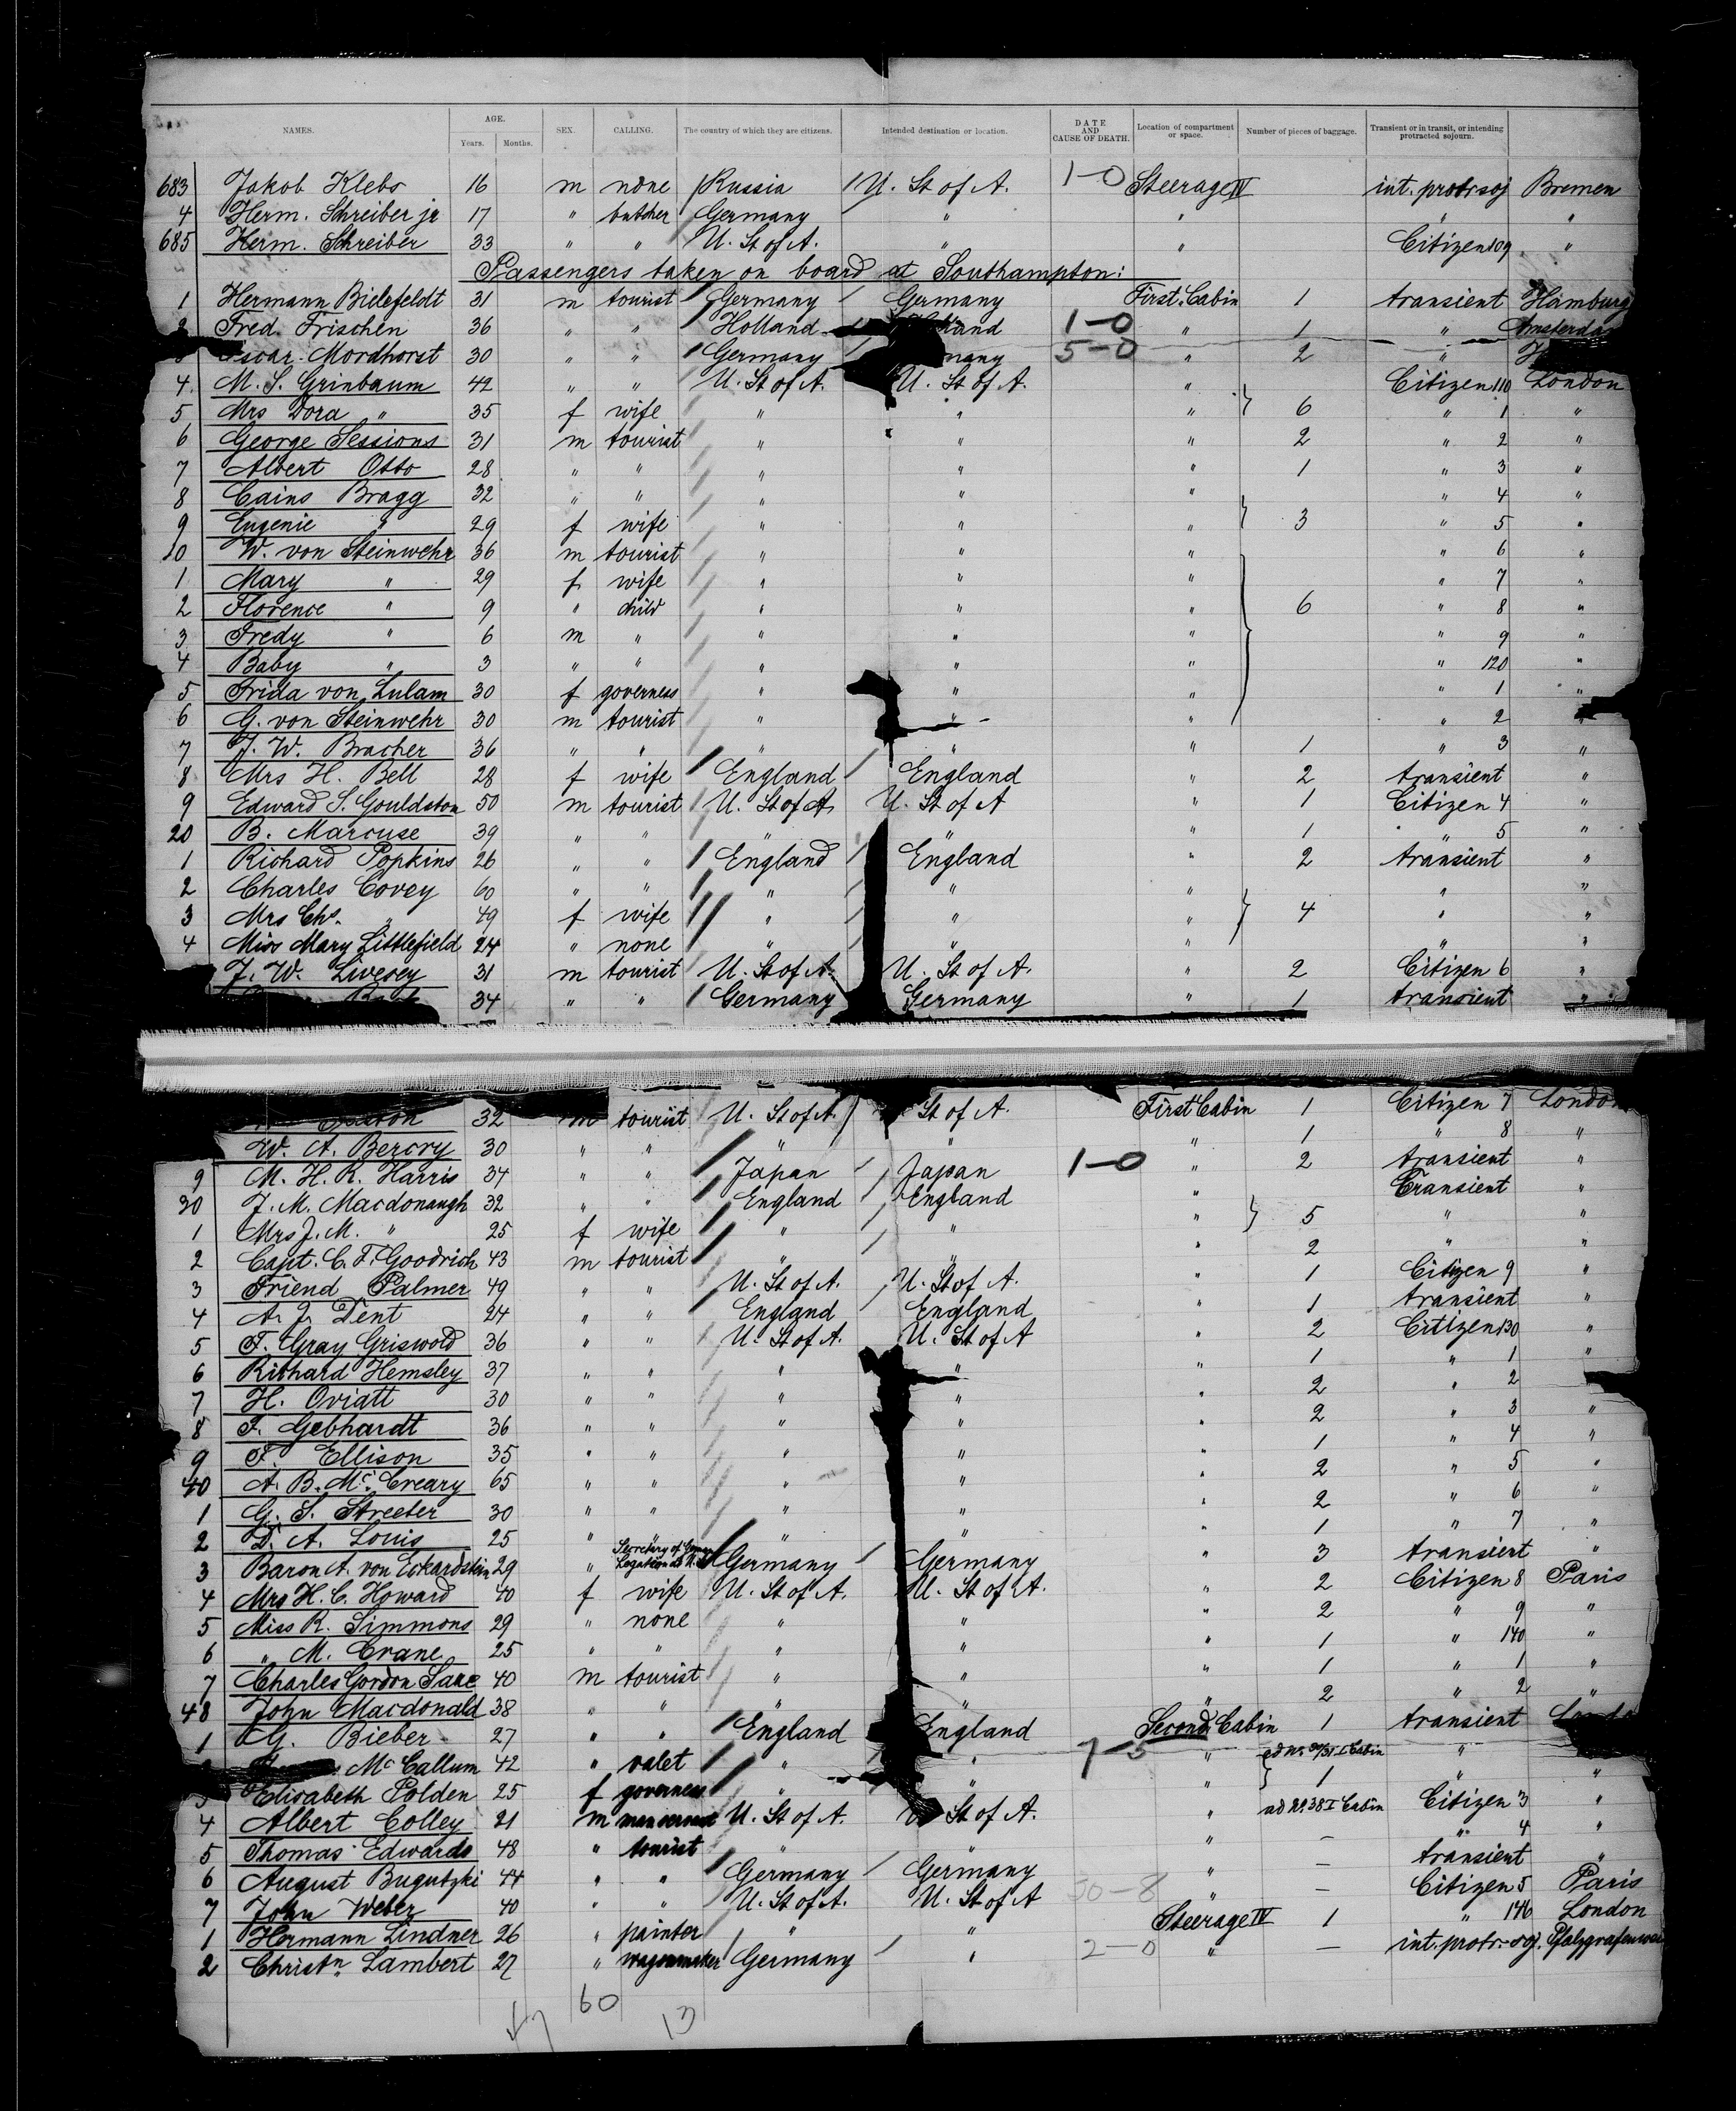 NAMES. AGE. Years. Months. SEX. CALLING. The country of which they are citizens. Intended destination or location. DATE AND CAUSE OF DEATH. Location of compartment or space. Number of pieces of baggage. Transient or in transit, or intending protracted sojourn.
683 Jakob Klebs 16 m none Russia U. St of A. 1-0 Steerage IV int. protr. soj Bremen
4 Herm. Schreiber jr 17 " butcher Germany " " " "
685 Herm. Schreiber 33 " " U. St of A. " " Citizen 109 "
Passengers taken on board at Southampton:
1 Hermann Bielefeldt 31 m tourist Germany Germany First Cabin 1 transient Hamburg
2 Fred. Frischen 36 " " Holland 1-0 " 1 "
Mordhorst 30 " " Germany 5-0 " 2 "
4. M. S. Grinbaum 42 " " U. St of A. U. St of A. " Citizen 110 London
5 Mrs Dora " 35 f wife " " " 6 " 1 "
6 George Sessions 31 m tourist " " " 2 " 2 "
7 Albert Otto 28 " " " " " 1 " 3 "
8 Cains Bragg 32 " " " " " " 4 "
9 Eugenie " 29 f wife " " " 3 " 5 "
10 W. von Steinwehr 36 m tourist " " " " 6 "
1 Mary " 29 f wife " " " " 7 "
2 Florence " 9 " child " " " 6 " 8 "
3 Fredy " 6 m " " " " " 9 "
4 Baby " 3 " " " " " " 120 "
5 Frida von Lulam 30 f governess " " " " 1 "
6 G. von Steinwehr 30 m tourist " " " " 2 "
7 J. W. Bracher 36 " " " " " 1 " 3 "
8 Mrs H. Bell 28 f wife England England " 2 transient "
9 Edward S. Gouldston 50 m tourist U. St of A. U. St of A " 1 Citizen 4 "
20 B. Marcuse 39 " " " " " 1 " 5 "
1 Richard Popkins 26 " " England England " 2 transient "
2 Charles Covey 60 " " " " " " "
3 Mrs Chs. " 49 f wife " " " 4 " "
4 Miss Mary Littlefield 24 " none " " " " "
J. W. Livesey 31 m tourist U. St of A. U. St of A. " 2 Citizen 6 "
34 " " Germany Germany " 1 transient "
32 m tourist U. St of A. St of A. First Cabin 1 Citizen 7 London
W. A. Bercry 30 " " " " " 1 " 8 "
9 M. H. R. Harris 34 " " Japan Japan 1-0 " 2 transient "
30 J. M. Macdonaugh 32 " " England England " transient "
1 Mrs J. M. " 25 f wife " " " 5 " "
2 Capt. C. F. Goodrich 43 m tourist " " " 2 " "
3 Friend Palmer 49 " " U. St of A. U. St of A. " 1 Citizen 9 "
4 A. J. Dent 24 " " England England " 1 transient "
5 F. Gray Griswold 36 " " U. St of A. U. St of A " 2 Citizen 130 "
6 Richard Hemsley 37 " " " " " 1 " 1 "
7 H. Oviatt 30 " " " " " 2 " 2
8 F. Gebhardt 36 " " " " " 2 " 3 "
9 F. Ellison 35 " " " " " 1 " 4 "
40 A. B. Mc Creary 65 " " " " " 2 " 5 "
1 G. S. Streeter 30 " " " " " 2 " 6 "
2 D. A. Louis 25 " " " " " 1 " 7 "
3 Baron A. von Eckardstein 29 " Secretary of Legation Germany Germany " 3 transient "
4 Mrs H. C. Howard 40 f wife U. St of A. U. St of A. " 2 Citizen 8 Paris
5 Miss R. Simmons 29 " none " " " 2 " 9 "
6 " M. Crane 25 " " " " " 1 " 140 "
7 Charles Gordon 40 m tourist " " " 1 " 1 "
48 John Macdonald 38 " " " " " 2 " 2 "
1 G. Bieber 27 " " England England Second Cabin 1 transient
Mc Callum 42 " valet " " 7-5 " I Cabin " "
3 Elisabeth Polden 25 f governess " " " 1 " "
4 Albert Colley 21 m manservant U. St of A. St of A. " ad No. 38 I Cabin Citizen 3 "
5 Thomas Edwards 48 " tourist " " " — " 4 "
6 August Bugutzki 44 " " Germany Germany " — transient "
7 John Weber 40 " " U. St of A. U. St of A 50-8 " — Citizen 5 Paris
1 Hermann Lindner 26 " painter " " Steerage IV 1 " 146 London
2 Christn. Lambert 27 " wagonmaker Germany " 2-0 " — int. protr. soj.
47 60 13